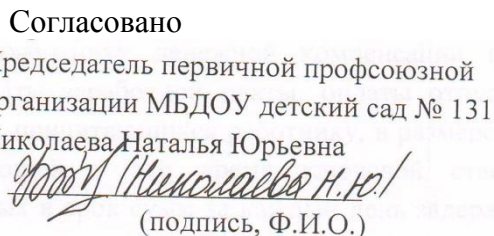 Согласовано
редседатель первичной профсоюзной
рганизации МБДОУ детский сад № 131
иколаева Наталья Юрьевна
/Николаева Н.Ю./
(подпись, Ф.И.О.)